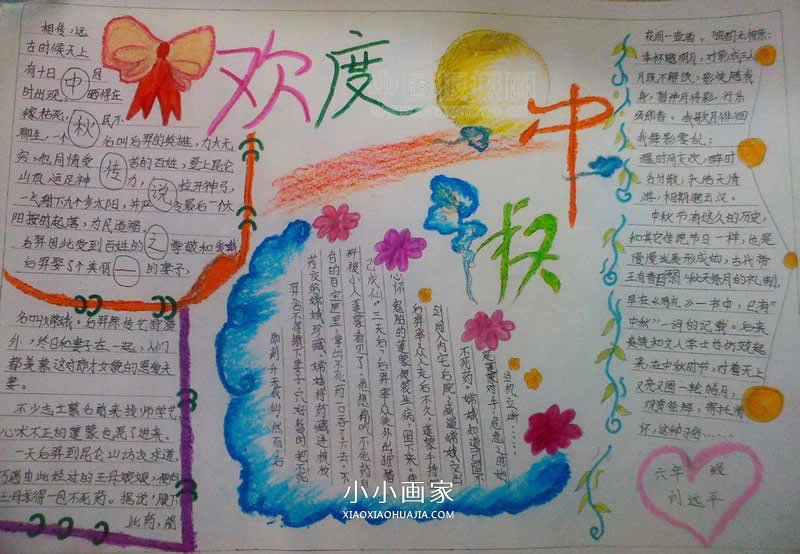 欢度中秋
相传，远
古时候天上
有十日
时出现，晒得庄
稼枯死，民不
聊生，一个名叫后羿的英雄，力大无
穷，他同情受苦的百姓，登上昆仑
山顶，运足神力，拉开神弓，
一气射下九个多太阳，并严令最后一个太
阳按时起落，为民造福。
后羿因此受到百姓的尊敬和爱戴
后羿娶了个美丽的妻子，
中
秋
传
说
之
一
名叫嫦娥。后羿除传艺狩猎
外，终日和妻子在一起，人们
都羡慕这对郎才女貌的恩爱夫
妻。
不少志士慕名前来投师学艺
心术不正的蓬蒙也混了进来。
一天后羿到昆仑山访友求道，
巧遇由此经过的王母娘娘，便向
王母求得一包不死药。据说，服下
此药，能
即刻升天成仙，然而后
羿舍不得撇下妻子，只好暂时把不死
药交给嫦娥珍藏。嫦娥将药藏进梳妆
台的百宝匣里，
三天后，后羿率众徒外出狩猎，
心怀鬼胎的蓬蒙假装生病，留了下来。
后羿率众人走后不久，蓬蒙手持
宝剑闯入内宅后院，威逼嫦娥交出
不死药。嫦娥知道自己不
是蓬蒙对手，危急之时她
当机立断……
花间一壶酒，独酌无相亲；
举杯邀明月，对影成三人
月既不解饮，影徒随我
身；暂伴月将影，行乐
须即春。我歌月徘徊
我舞影零乱；
醒时同交欢，醉时
各分散；永结无情
游，相期邈云汉。
中秋节有悠久的历史，
和其它传统节日一样，也是
慢慢发展形成的，古代帝
王有春日祭日，秋天祭月的礼制，
早在《周礼》一书中，已有"
中秋"一词的记载。后来
贵族和文人学士也仿效起
来，在中秋时节，对着天上
又亮又圆一轮皓月，
观赏祭拜，寄托情
怀，这种习俗……
六年 班
刘远平
小小画家
XIAOXIAOHUAJIA.COM